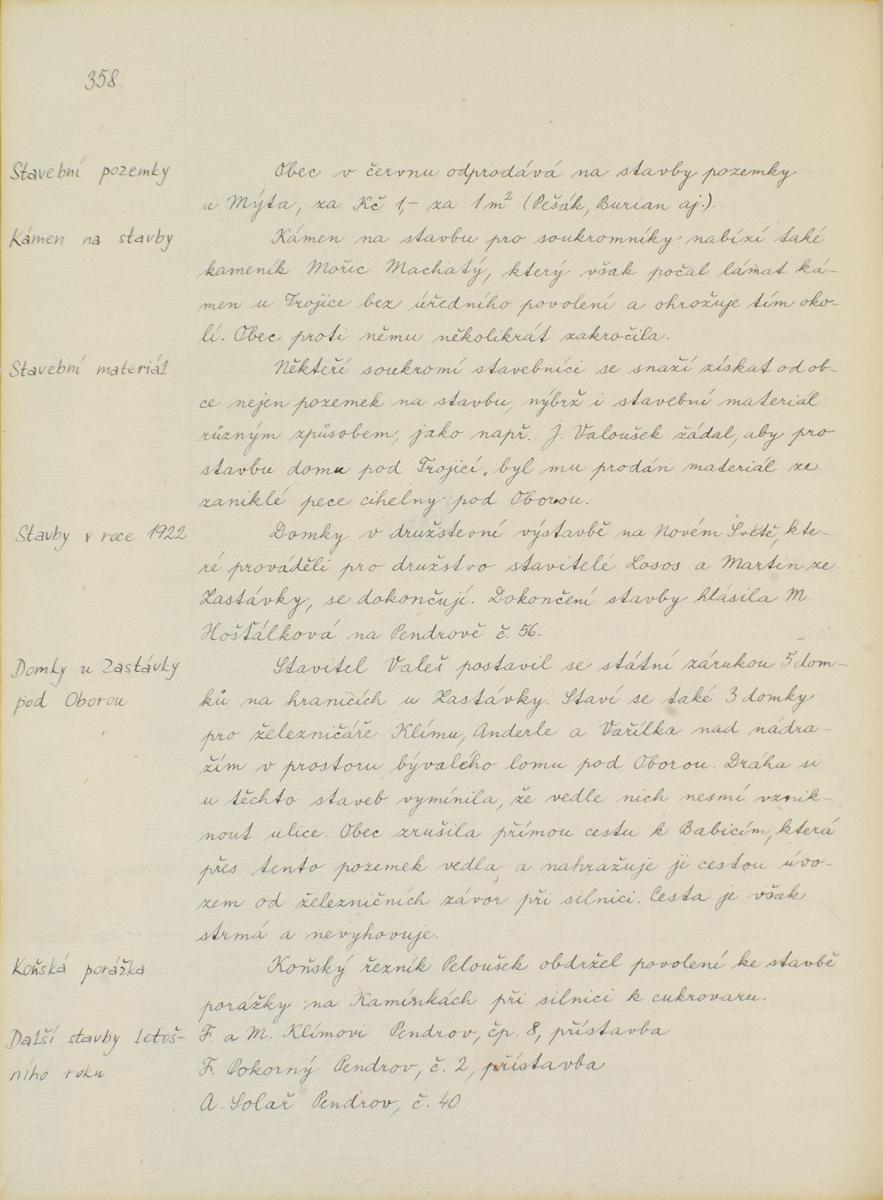 358.
Stavební pozemky
Obec v červnu odprodává na stavby pozemky
u Mýta, za Kč 1,- za 1 m² (Pešák, Burian aj.).
Kámen na stavby
Kámen na stavbu pro soukromníky nabízí také
kameník Mořic Machatý, který však počal lámat ká-
men u Trojice bez úředního povolení a ohrožuje tím oko-
lí. Obec proti němu několikrát zakročila.
Stavební materiál
Někteří soukromí stavebníci se snaží získat od ob-
ce nejen pozemek na stavbu, nýbrž i stavební materiál
různým způsobem, jako např. J. Valoušek žádal, aby pro
stavbu domu pod Trojicí, byl mu prodán materiál ze
zaniklé pece cihelny pod Oborou.
Stavby v roce 1922
Domky v družstevní výstavbě na Novém Světě, kte-
ré prováděli pro družstvo stavitelé Losos a Martin ze
Zastávky, se dokončují. Dokončení stavby hlásila M.
Hošťálková na Pendrově č. 56.
Domky u Zastávky
pod Oborou
Stavitel Valeš postavil se státní zárukou 5 dom-
ků na hranicích u Zastávky. Staví se také 3 domky
pro železničáře Klímu, Anderle a Vařílka nad nádra-
žím v prostoru bývalého lomu pod Oborou. Dráha si
u těchto staveb vymínila, že vedle nich nesmí vznik-
nout ulice. Obec zrušila přímou cestu k Babicím, která
přes tento pozemek vedla, a nahražuje ji cestou úvo-
zem od železničních závor při silnici. Cesta je však
strmá a nevyhovuje.
Koňská porážka
Koňský řezník Peloušek obdržel povolení ke stavbě
porážky na Kamínkách při silnici k cukrovaru.
Další stavby letoš-
ního roku
F. a M. Klímovi Pendrov, čp. 8, přístavba
F. Pokorný Pendrov, č. 2, přístavba
A. Solař Pendrov, č. 40